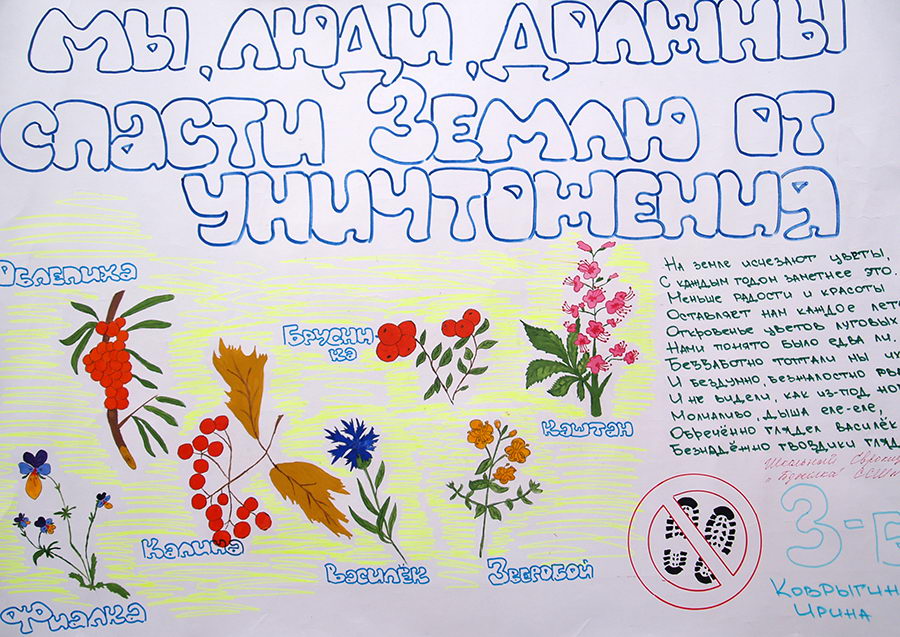 Мы, люди, должны
спасти Землю от
уничтожения
Облепиха
Брусни
ка
Каштан
Калина
Василёк
Зверобой
Фиалка
На земле исчезают цветы,
С каждым годом заметнее это.
Меньше радости и красоты
Оставляет нам каждое лет
Откровенье цветов луговых
Нами понято было едва ли.
Беззаботно топтали мы их
И бездумно, безжалостно рв
И не видели, как из-под но
Молчаливо, дыша еле-еле,
Обречённо глядел василёк
Безнадёжно гвоздики гляд
Школьный
3-Б
Ковырягин
Ирина